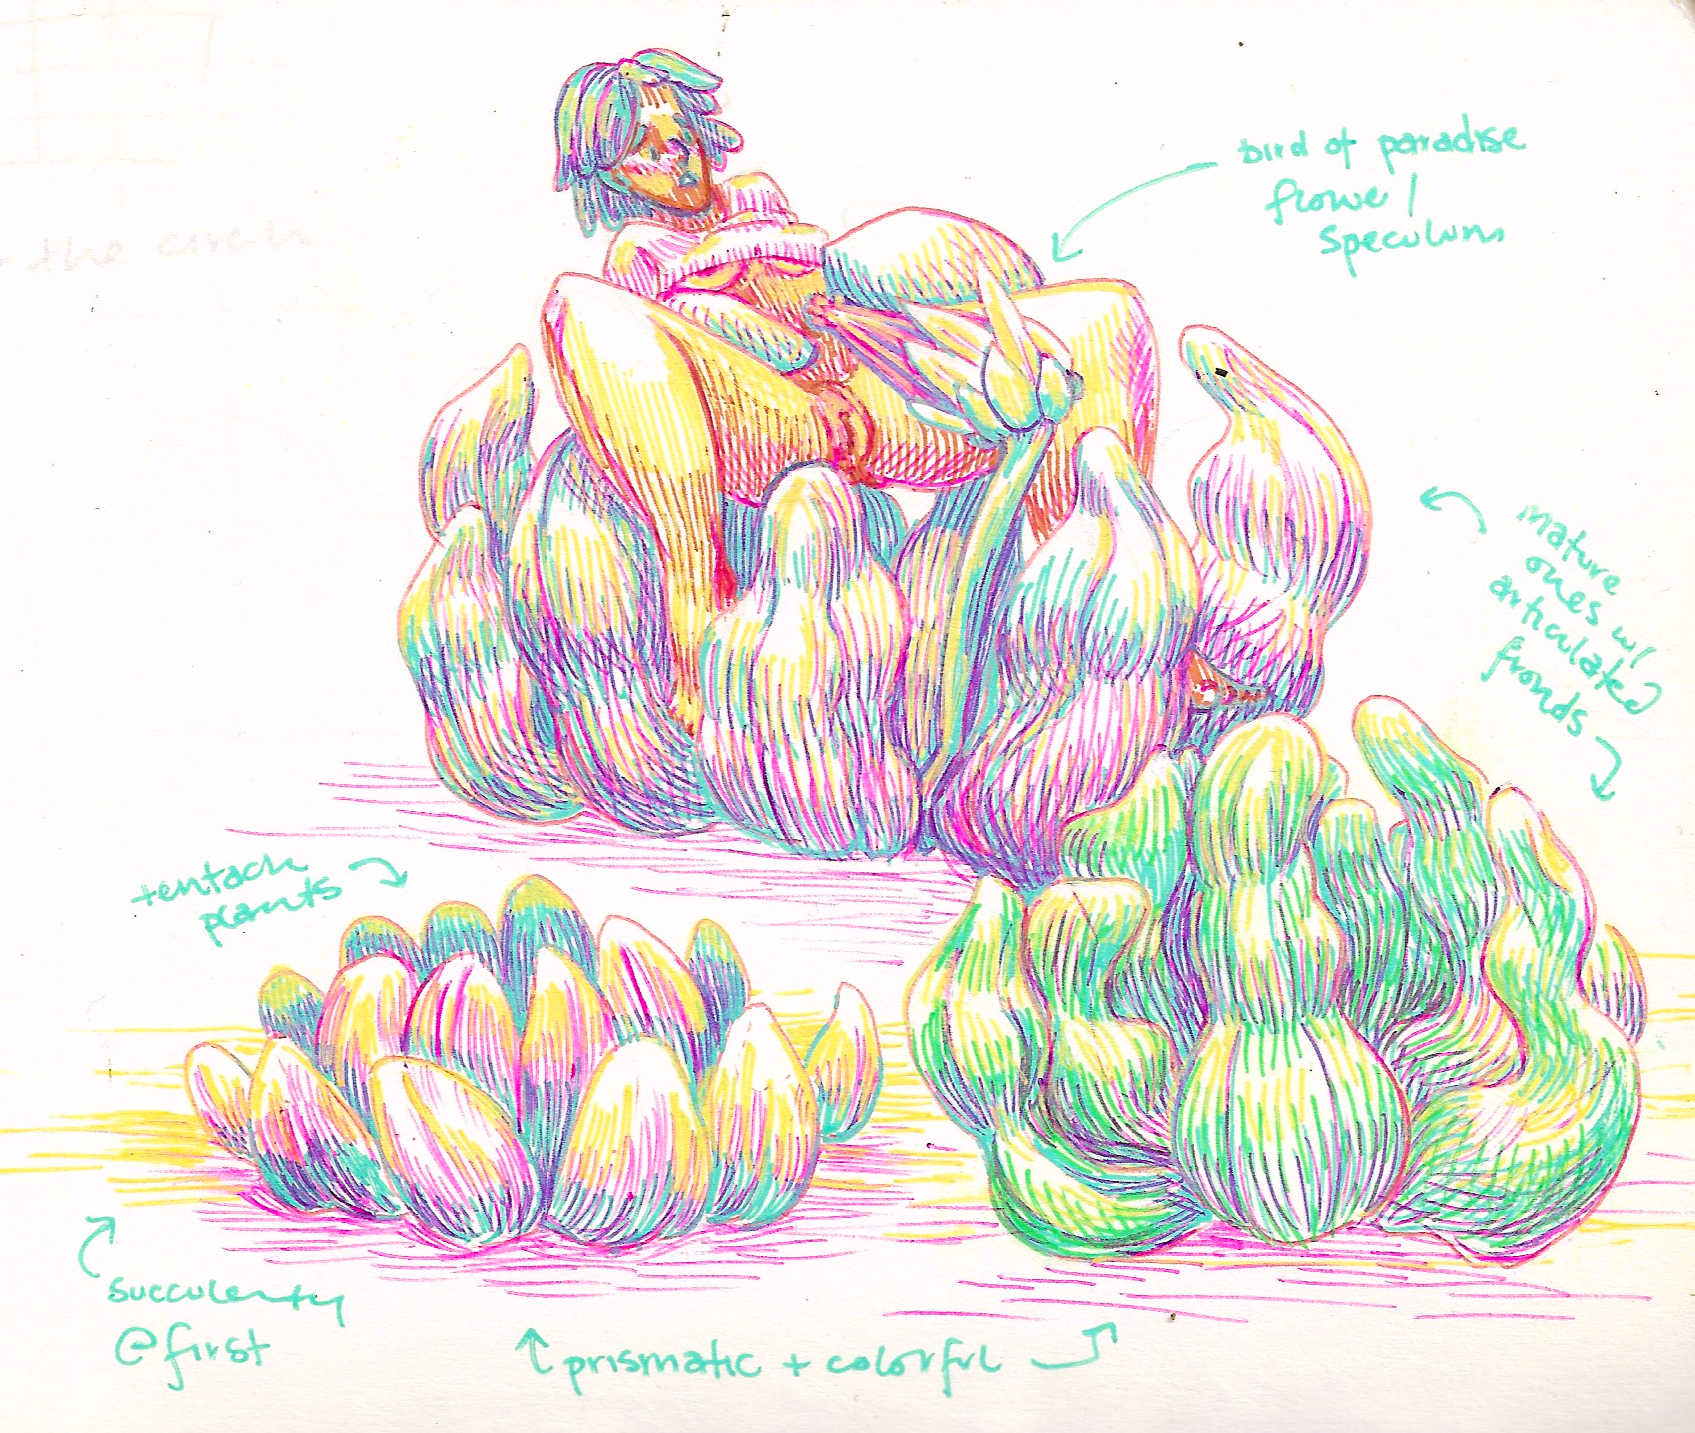 bird of paradise
flower/
speculum
mature
ones w/
articulated
fronds
tentacle
plants
succulenty
@first
prismatic + colorful